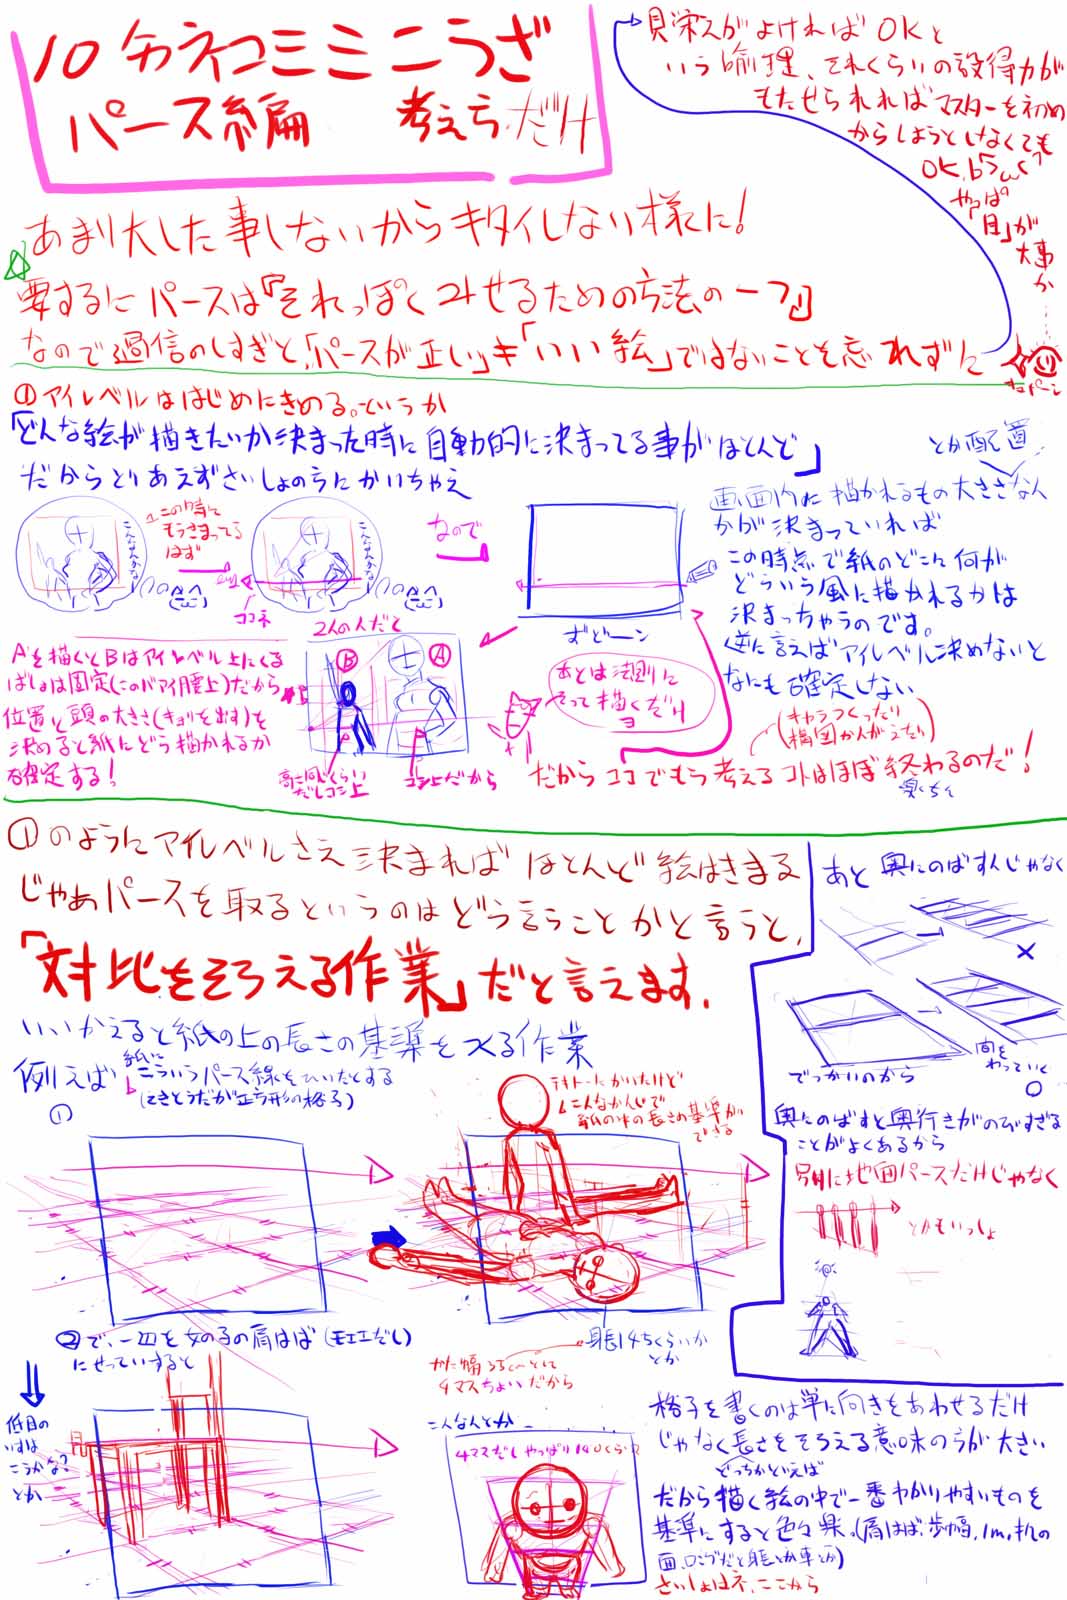 10分ネコミミこうざ
パース編 考え方だけ
見栄えがよければOKと
いう倫理、それくらいの説得力が
もたせられればマスターを初め
からしようとしなくても
OK
やっぱ
「目」が
大事
か
あまり大した事しないからキタイしない様に!
要するにパースは『それっぽくみせるための方法の一つ』
なので過信のしすぎと、「パースが正しい」≠「いい絵」ではないことを忘れずに
①アイレベルははじめにきめる。というか
「どんな絵が描きたいか決まった時に自動的に決まってる事がほとんど」
だからとりあえずさいしょのうちにかいちゃえ
この時に
もうきまってる
はず
ココネ
2人の人だと
なので
ずどーん
とか配置
画面内に描かれるもの大きさなん
かが決まっていれば
この時点で紙のどこに何が
どういう風に描かれるかは
決まっちゃうのです。
逆に言えばアイレベル決めないと
なにも確定しない
Aを描くとBはアイレベル上にくる
ばしょは固定(このバアイ腰上)だから
位置と頭の大きさ(キョリを出す)を
決めると紙にどう描かれるか
確定する!
B
A
高さ同じくらい
だしコシ上
コシ上だから
あとは法則に
そって描くだけ
ヨ
(キャラつくったり
構図かんがえたり)
だからココでもう考えるコトはほぼ終わるのだ!
①のようにアイレベルさえ決まればほとんど絵はきまる
じゃあパースを取るというのはどう言うことかと言うと,
「対比をそろえる作業」だと言えます.
いいかえると紙の上の長さの基準をつくる作業
例えば
紙に
こういうパース線をひいたとする
(てきとうだが正方形の格子)
①
テキトーにかいたけど
こんなかんじで
紙の中の長さの基準が
できる
あと奥にのばすんじゃなく
でっかいのから
間を
わっていく
奥にのばすと奥行きがのびすぎる
ことがよくあるから
別に地面パースだけじゃなく
とかもいっしょ
②で、一辺を女の子の肩はば(モエエだし)
にせっていすると
身長14ちくらいか
とか
4マスちょいだから
低目の
いすは
こうかな?
とか
こんなんとか
格子を書くのは単に向きをあわせるだけ
じゃなく長さをそろえる意味のうが大きい
どっちかといえば
だから描く絵の中で一番わかりやすいものを
基準にすると色々楽。(肩はば,歩幅,1m,机の
面,ロボだと身長とか車とか)
さいしょはネ、ここから